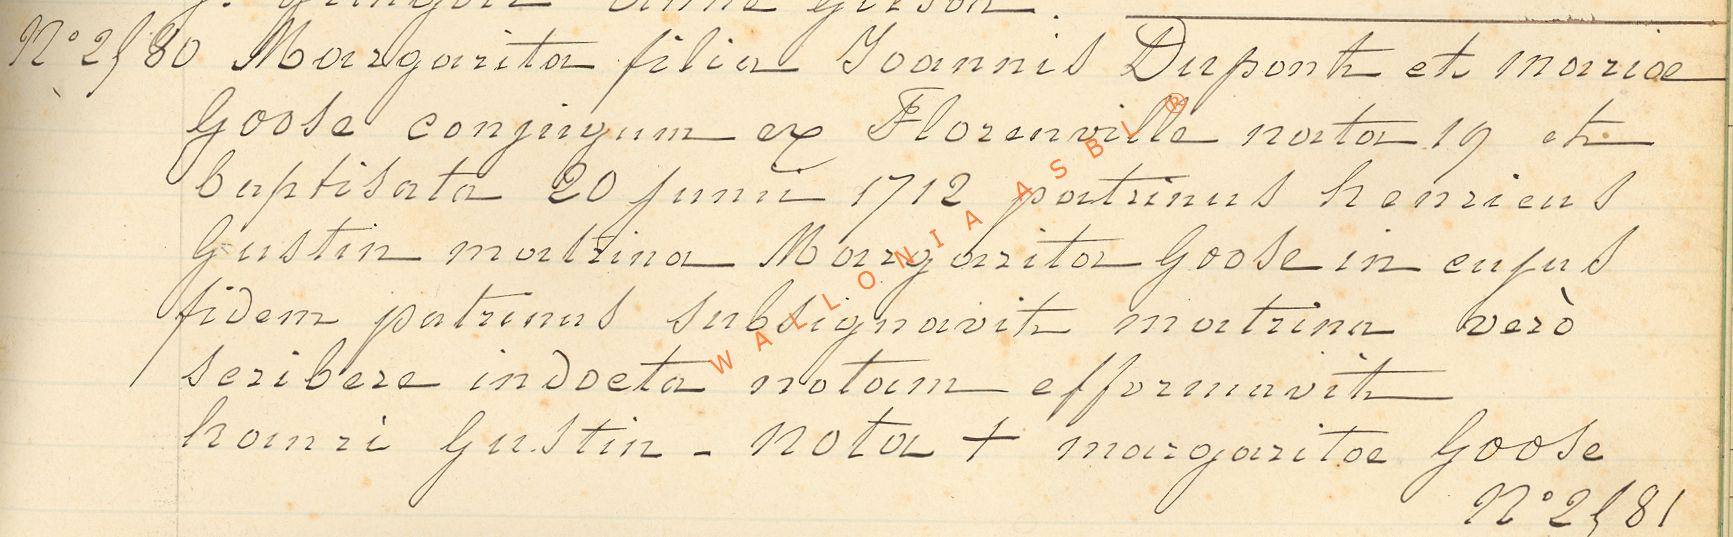 anne gilson.
N° 2580 Margarita filia Joannis Dupont et mariae
Goose conjugum ex Florenville nata 19 et
baptisata 20 junii 1712 patrinus henricus
Gustin matrina Margarita Goose in cujus
fidem patrinus subsignavit matrina verò
scribere indocta notam efformavit
hanri Gustin - nota + margaritae Goose
N° 2581
WALLONIA ASBL ®